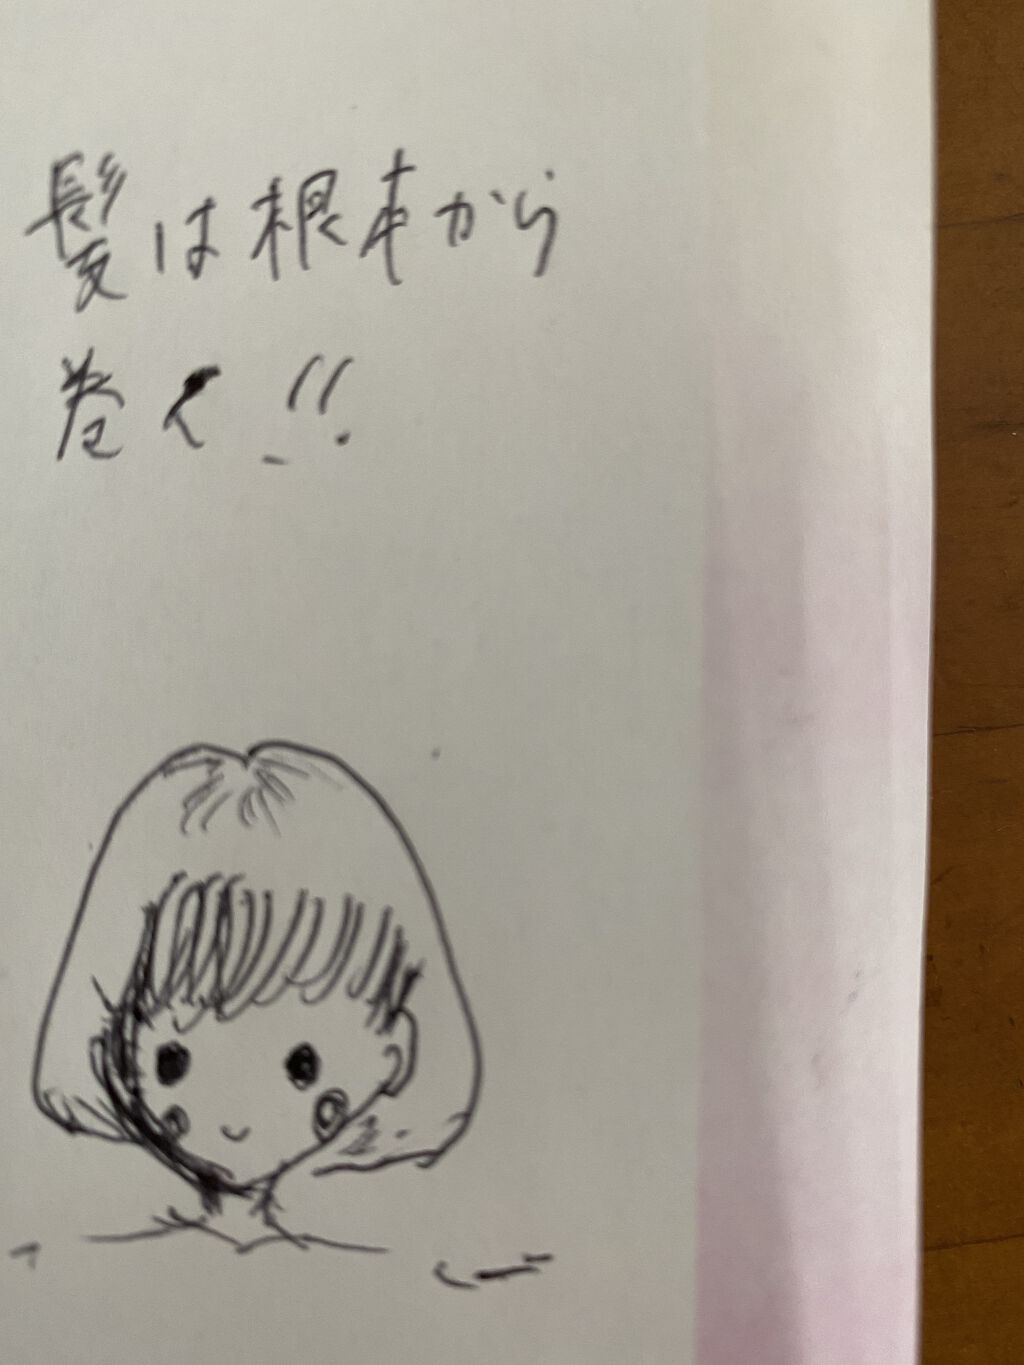 髪は根本から
巻く!!